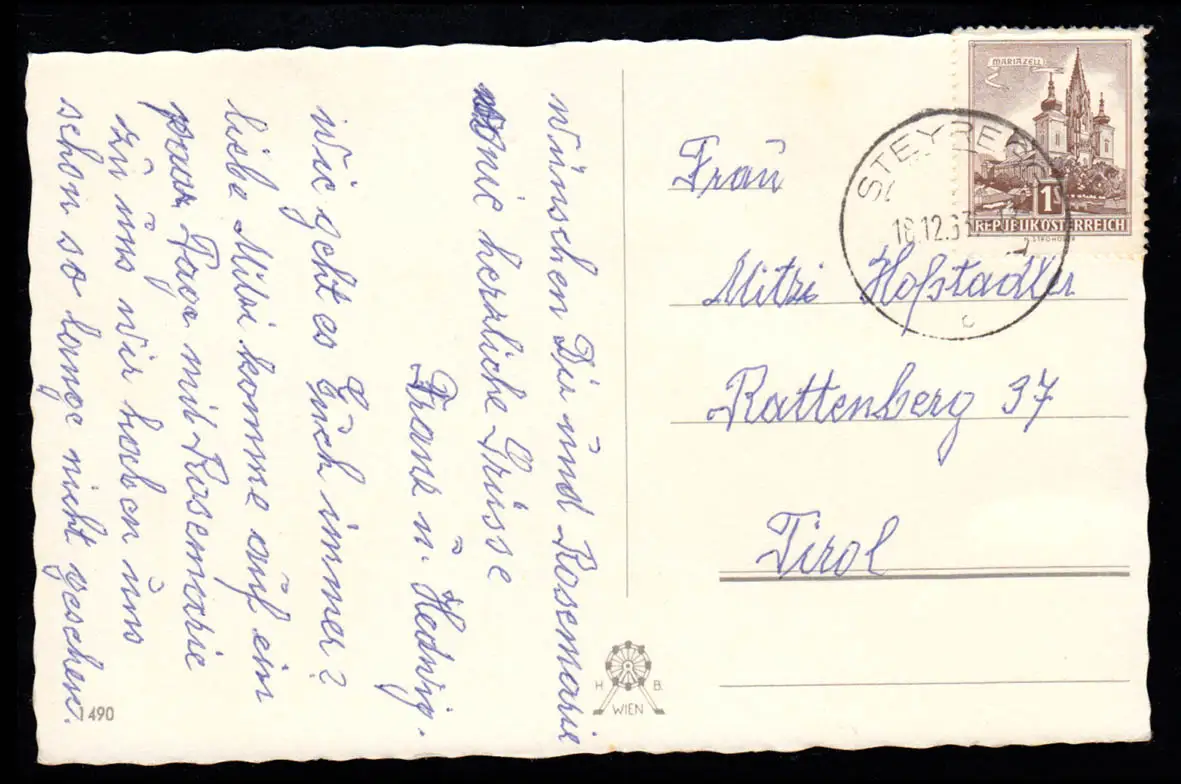 wünschen Dir und Rosemarie
herzliche Grüsse
Franz u. Hedwig.
Wie geht es Euch immer?
liebe Mitzi komme auf ein
paar Tage mit Rosemarie
zu uns wir haben uns
schon so lange nicht gesehen.
1490
H. B.
WIEN
MARIAZELL
1 S
REPUBLIK ÖSTERREICH
STEYREGG
18.12.63
c
Frau
Mitzi Hofstadler
Rattenberg 37
Tirol